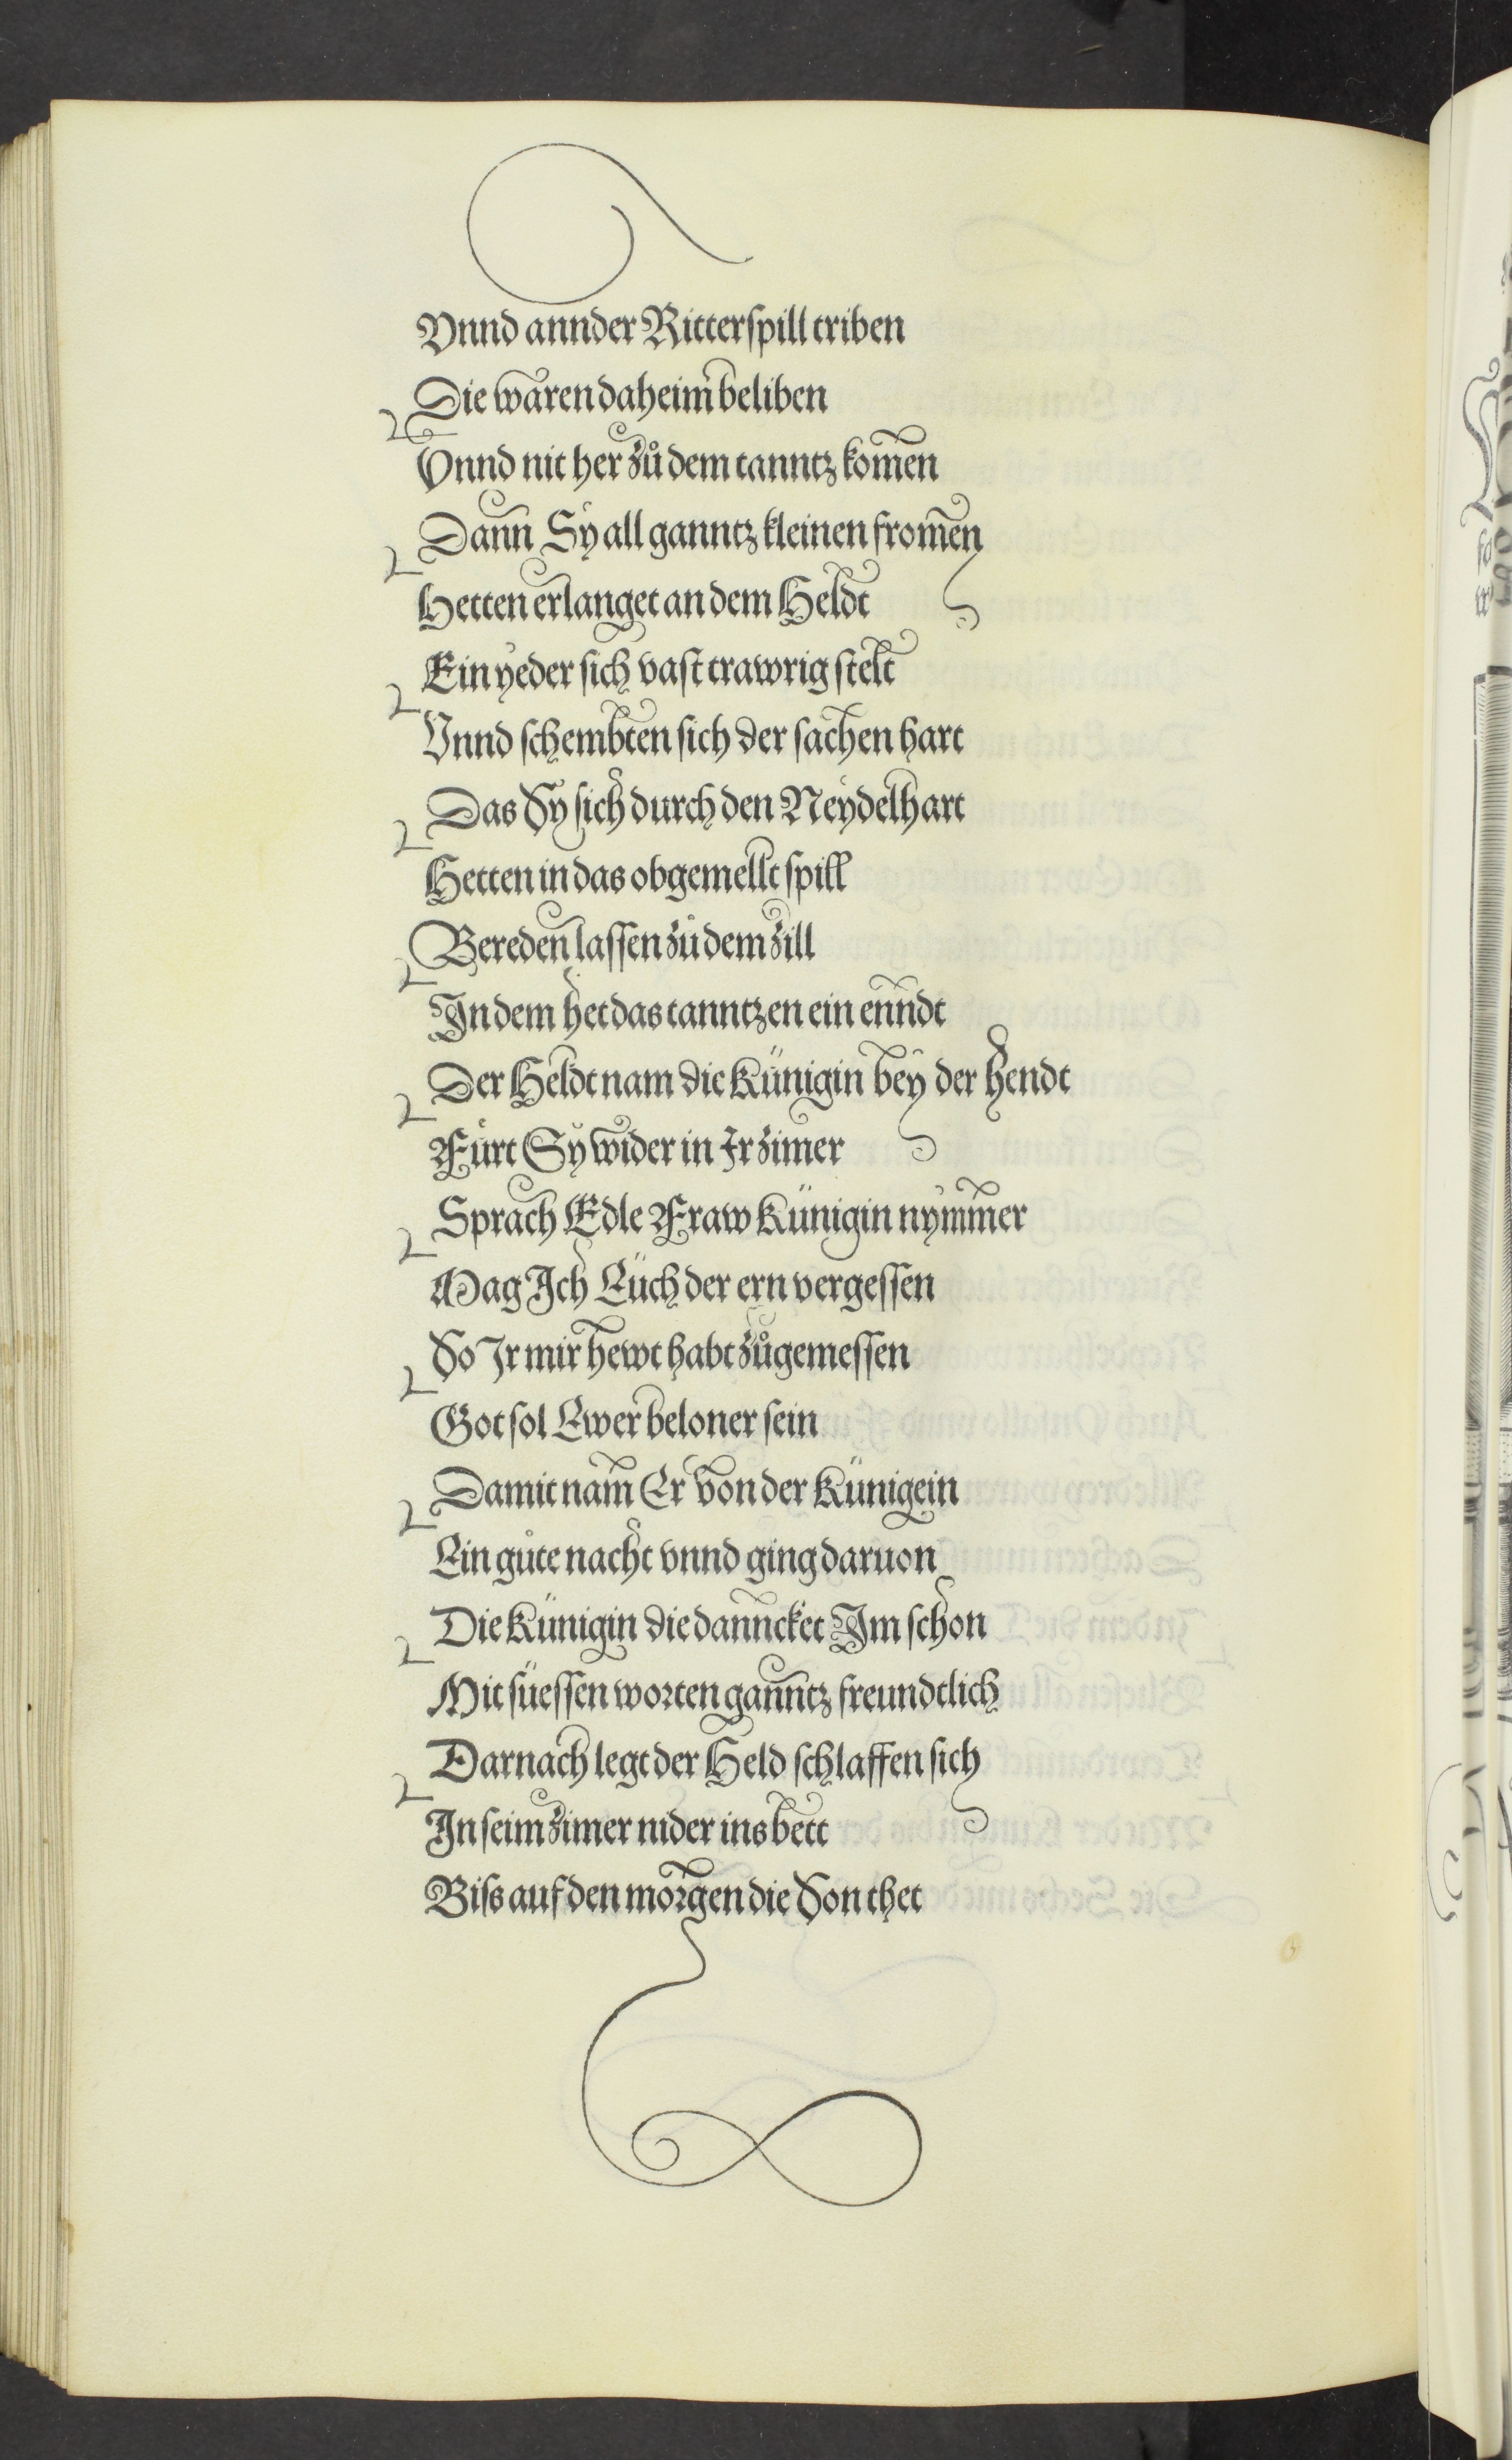 Vnnd annder Ritterspill triben
Die waren daheim beliben
Vnnd nit her zů dem tanntz komen
Dann Sy all ganntz kleinen fromen
Hetten erlanget an dem Heldt
Ein yeder sich vast trawrig stelt
Vnnd schembten sich der sachen hart
Das Sy sich durch den Neydelhart
Hetten in das obgemellt spill
Bereden lassen zů dem zill
In dem het das tanntzen ein enndt
Der Heldt nam die Künigin bey der hendt
Fůrt Sy wider in Ir zimer
Sprach Edle Fraw Künigin nymmer
Mag Ich Eüch der ern vergessen
So Ir mir hewt habt zůgemessen
Got sol Ewer beloner sein
Damit nam Er von der Künigein
Ein gůte nacht vnnd ging daruon
Die Künigin die dannckhet Im schon
Mit süessen worten ganntz freundtlich
Darnach legt der Held schlaffen sich
In seim zimer nider ins bett
Biss auf den morgen die Son thet